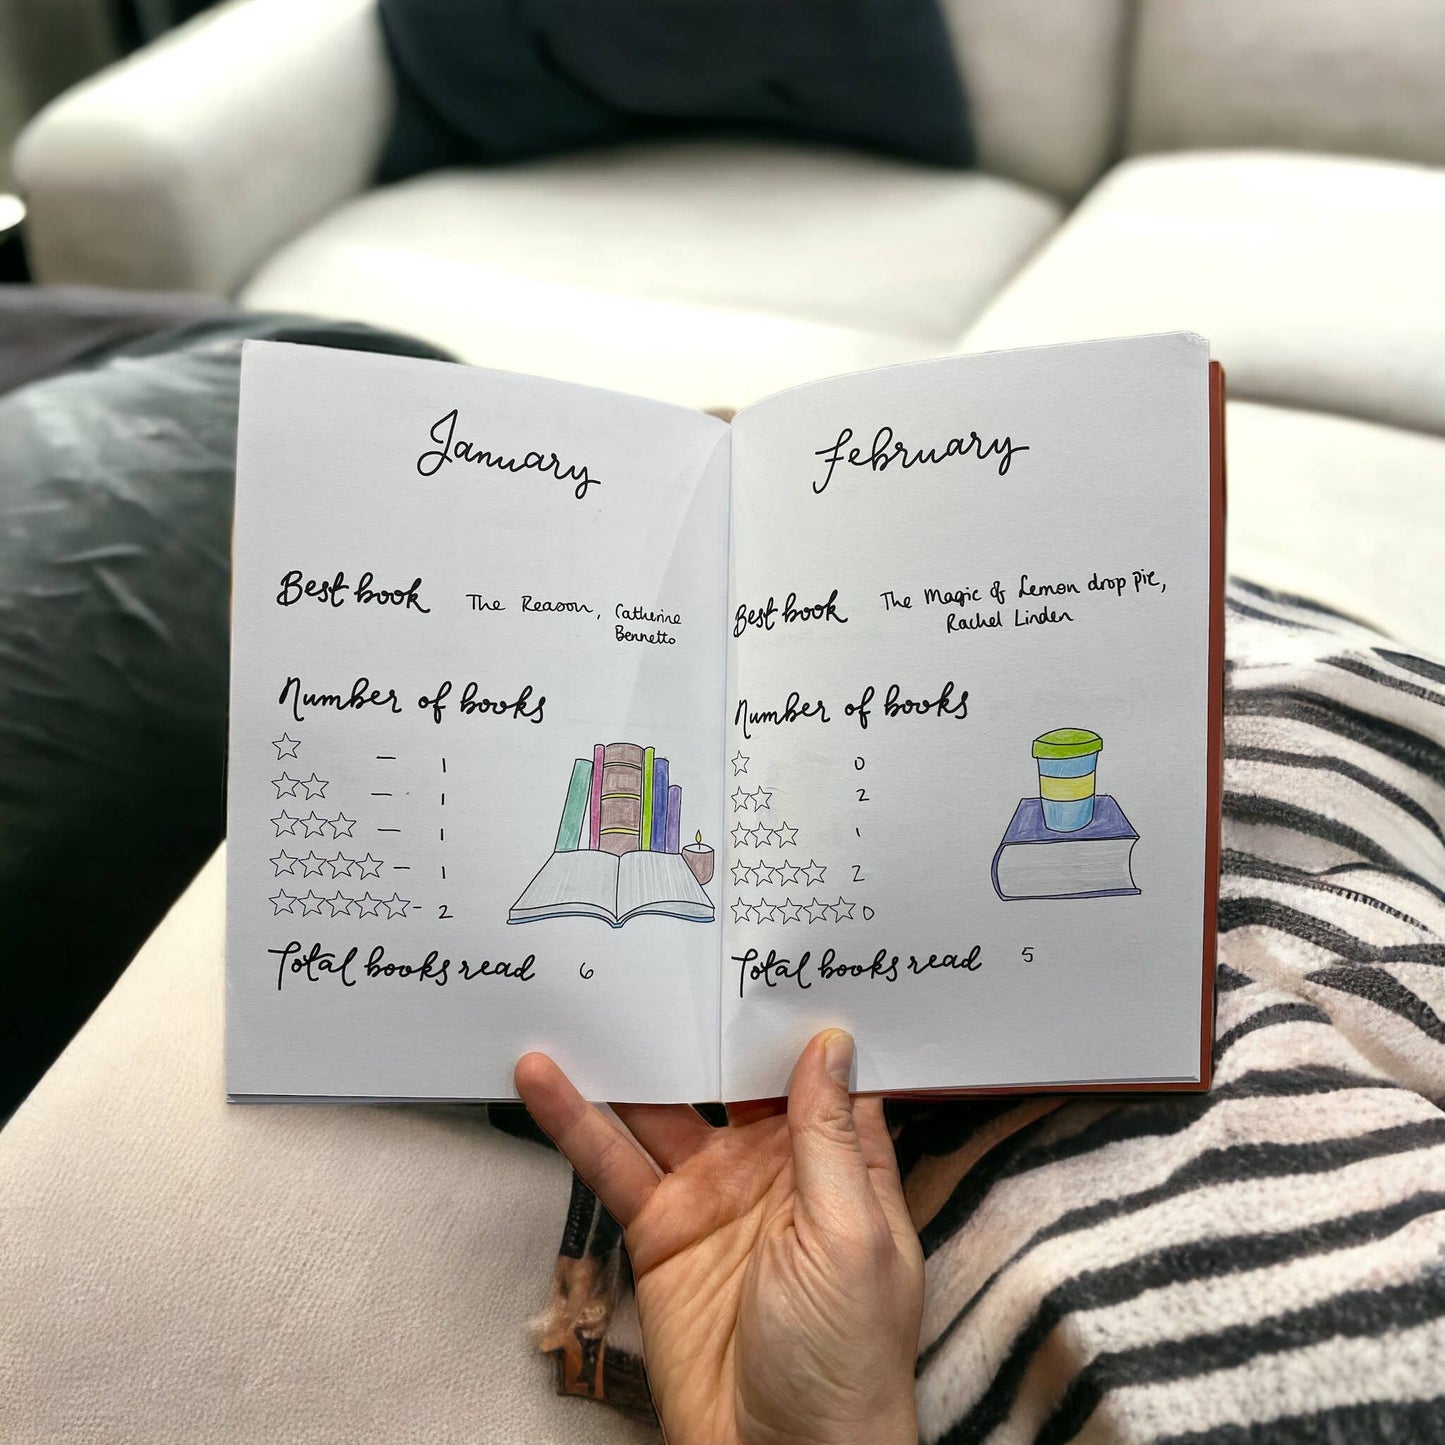 January
Best book The Reason, Catherine
Bennetto
Number of books
☆ – 1
☆☆ – 1
☆☆☆ – 1
☆☆☆☆ – 1
☆☆☆☆☆ – 2
Total books read 6
February
Best book The Magic of Lemon drop pie,
Rachel Linden
Number of books
☆ 0
☆☆ 2
☆☆☆ 1
☆☆☆☆ 2
☆☆☆☆☆ 0
Total books read 5